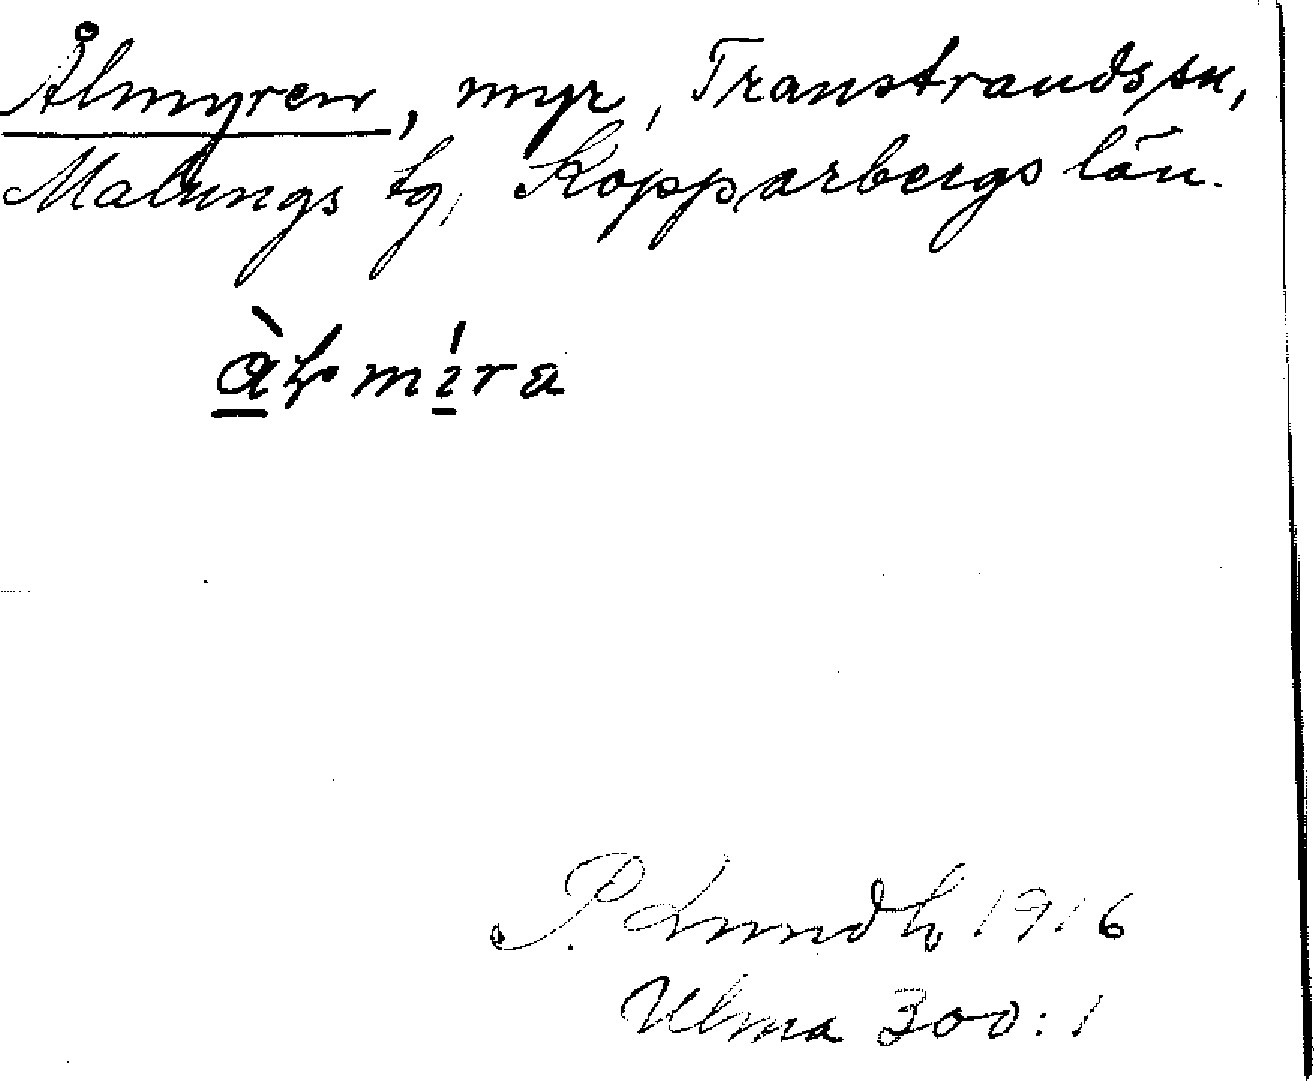 Ålmyren, myr, Transtrands sn,
Malungs tg, Kopparbergs län.
P. Lundh 1916
Ulma 300:1